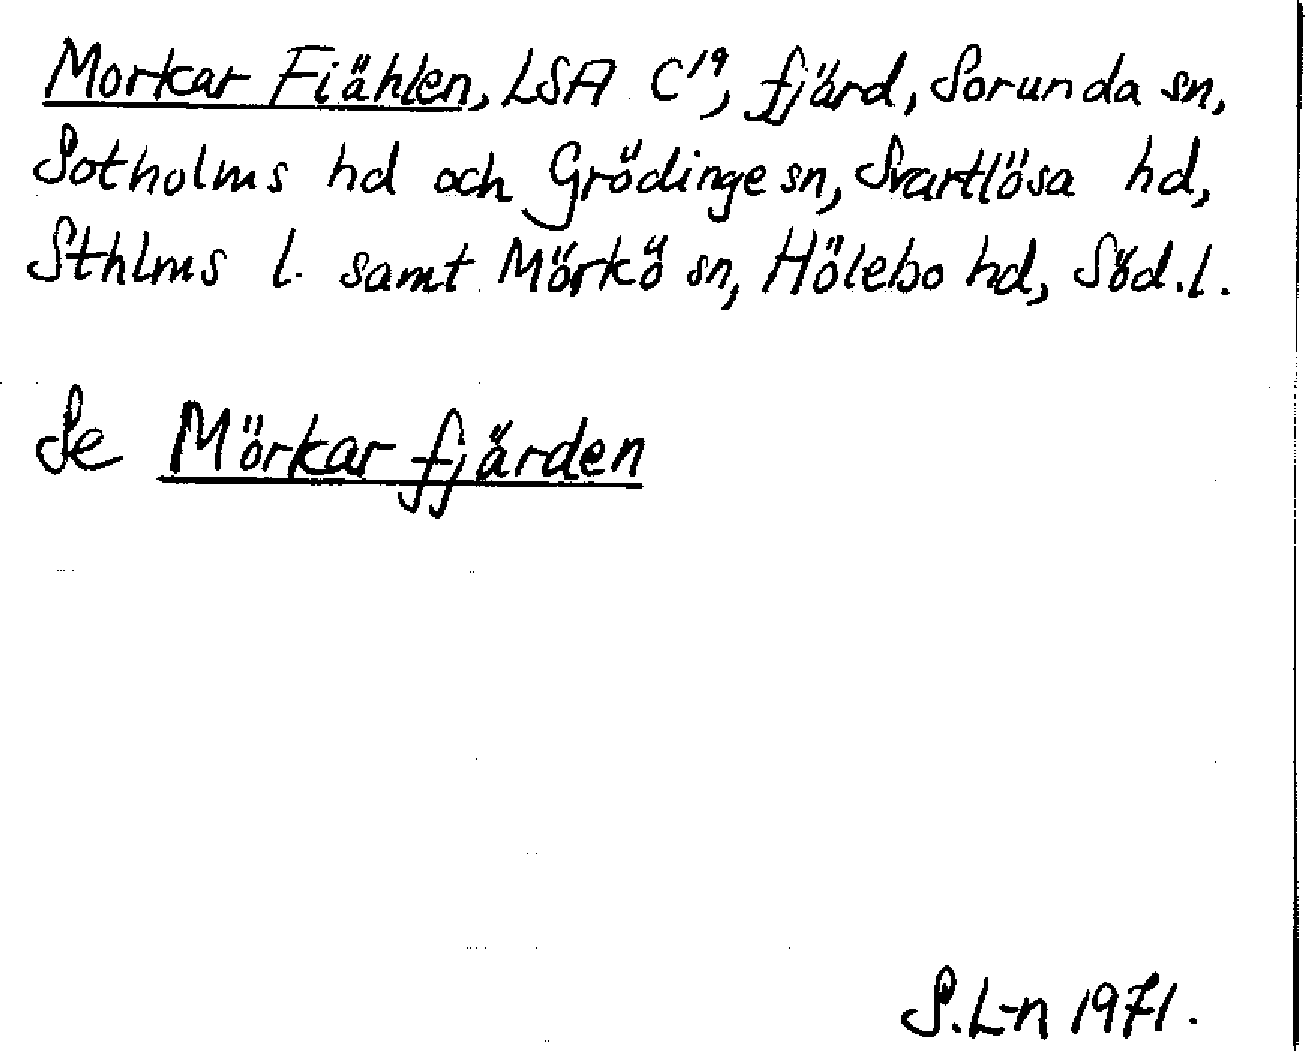 Morkar Fiählen, LSA C¹⁹, fjärd, Sorunda sn,
Sotholms hd och Grödinge sn, Svartlösa hd,
Sthlms l. samt Mörkö sn, Hölebo hd, Söd.l.
Se Mörkar fjärden
S.L-n 1971.